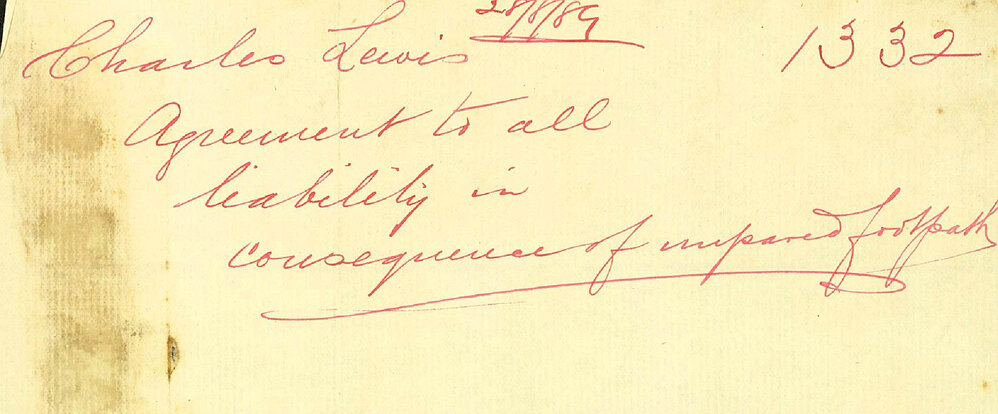 28/8/89
Charles Lewis 1332
Agreement to all
liability in
consequence of unpaved footpath